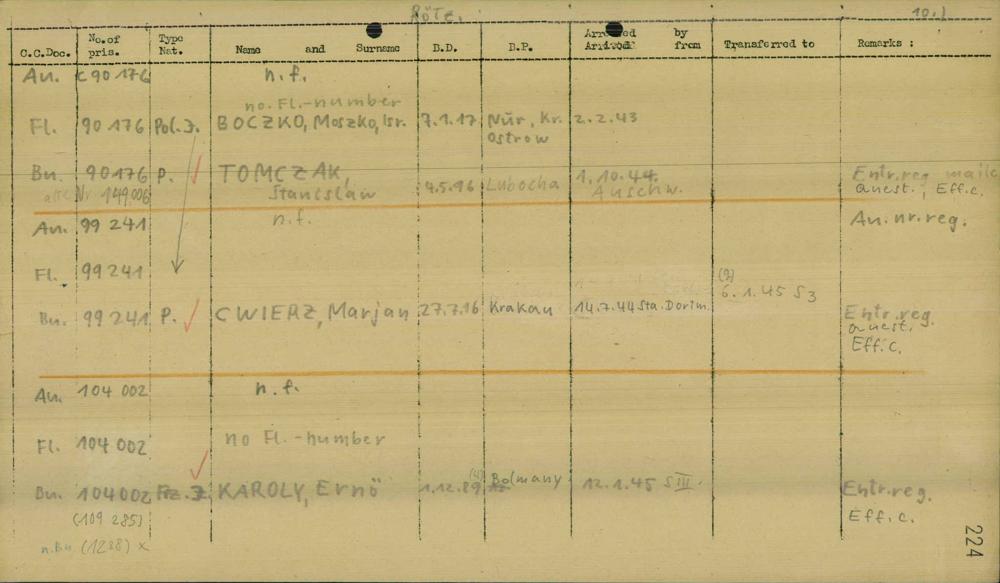 Rötz.
10.)
C.C.Doc. No. of pris. Type Nat. Name and Surname B.D. B.P. Arrested Arrived by from Transferred to Remarks :
An. c 90 176 n.f.
no. Fl.-number
Fl. 90 176 Pol.J. BOCZKO, Moszko, Isr. 7.1.17 Nŭr, Kr. 2.2.43
Ostrow
Bu. 90176 P. TOMCZAK, 1.10.44. Entr.reg
Nr 149006 Stanislaw 4.5.96 Lubocha Auschw. quest., Eff.c.
An. 99 241 n.f. An. nr. reg.
Fl. 99241 (?)
6.1.45 S3
Bu. 99 241 P. CWIERZ, Marjan 27.7.16 Krakau 14.7.44 Sta. Dorim. Entr.reg.
quest.
Eff.c.
An. 104 002 n.f.
Fl. 104 002 no Fl.-number
Bu. 104002 KAROLY, Ernö 1.12.89 Bolmany 12.1.45 S III. Entr.reg.
(109 285) Eff.c.
n.Bu (1238) x
224